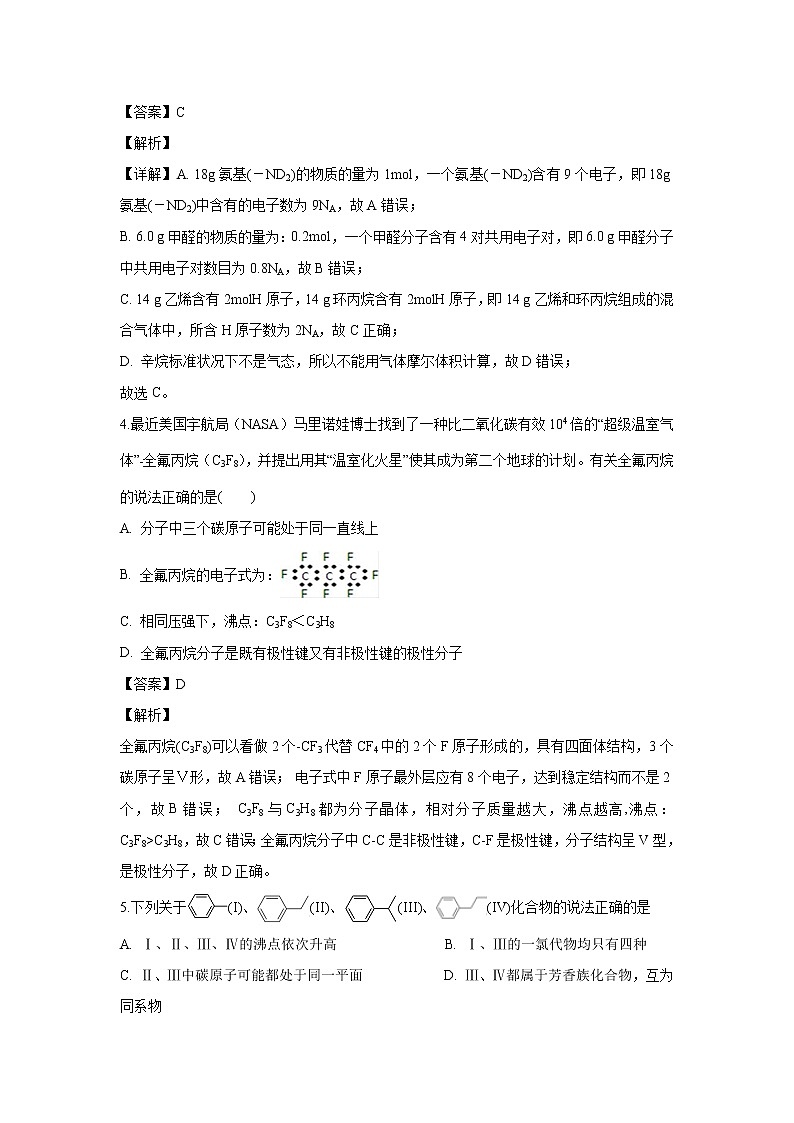 【答案】C
【解析】
【详解】A. 18g氨基(－ND₂)的物质的量为1mol，一个氨基(－ND₂)含有9个电子，即18g
氨基(－ND₂)中含有的电子数为9Nₐ，故A错误；
B. 6.0 g甲醛的物质的量为：0.2mol，一个甲醛分子含有4对共用电子对，即6.0 g甲醛分子
中共用电子对数目为0.8Nₐ，故B错误；
C. 14 g乙烯含有2molH原子，14 g环丙烷含有2molH原子，即14 g乙烯和环丙烷组成的混
合气体中，所含H原子数为2Nₐ，故C正确；
D. 辛烷标准状况下不是气态，所以不能用气体摩尔体积计算，故D错误；
故选C。
4.最近美国宇航局（NASA）马里诺娃博士找到了一种比二氧化碳有效10⁴倍的“超级温室气
体”-全氟丙烷（C₃F₈），并提出用其“温室化火星”使其成为第二个地球的计划。有关全氟丙烷
的说法正确的是(　　)
A. 分子中三个碳原子可能处于同一直线上
F F F
B. 全氟丙烷的电子式为：F C C C F
F F F
C. 相同压强下，沸点：C₃F₈＜C₃H₈
D. 全氟丙烷分子是既有极性键又有非极性键的极性分子
【答案】D
【解析】
全氟丙烷(C₃F₈)可以看做2个-CF₃代替CF₄中的2个F原子形成的，具有四面体结构，3个
碳原子呈Ⅴ形，故A错误； 电子式中F原子最外层应有8个电子，达到稳定结构而不是2
个，故B错误； C₃F₈与C₃H₈都为分子晶体，相对分子质量越大，沸点越高,沸点：
C₃F₈>C₃H₈，故C错误；全氟丙烷分子中C-C是非极性键，C-F是极性键，分子结构呈V型，
是极性分子，故D正确。
5.下列关于(I)、(II)、(III)、(IV)化合物的说法正确的是
A. Ⅰ、Ⅱ、Ⅲ、Ⅳ的沸点依次升高 B. Ⅰ、Ⅲ的一氯代物均只有四种
C. Ⅱ、Ⅲ中碳原子可能都处于同一平面 D. Ⅲ、Ⅳ都属于芳香族化合物，互为
同系物